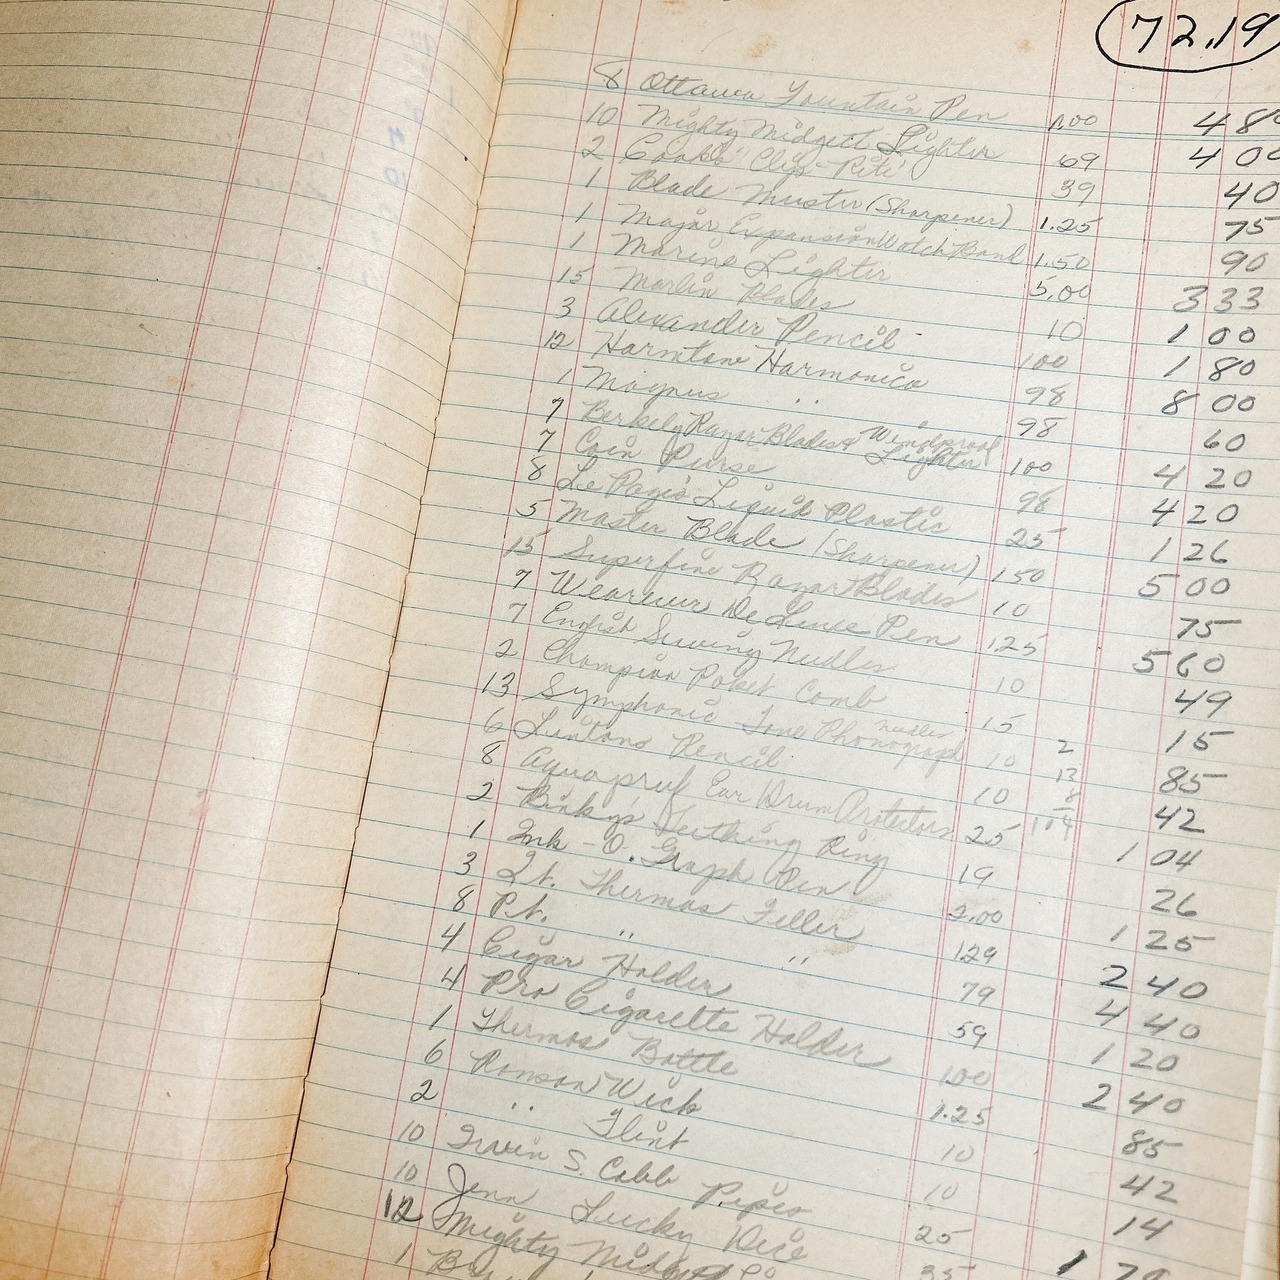 72.19
8 Ottawa Fountain Pen 1.00 480
10 Mighty Midgett Lighter 69 4 00
2 Cooks "Clip-Rite" 39 40
1 Blade Master (Sharpener) 1.25 75
1 Major Expansion Watch Band 1.50 90
1 Marine Lighter 5.00 3 33
15 Marlin Blades 10 1 00
3 Alexander Pencil 100 1 80
12 Harmtone Harmonica 98 8 00
1 Magnus " 98 60
7 Berkely Razar Blades & Windproof Lighter 100 4 20
7 Coin Purse 98 4 20
8 Le Page's Liquid Plastic 25 1 26
5 Master Blade (Sharpener) 150 5 00
15 Superfine Razar Blades 10 75
7 Wearever De Luxe Pen 125 5 60
7 English Sewing Needles 10 49
2 Champion Poket Comb 15 15
13 Symphonic Tone Phonograph Needles 10 85
6 Pencil 10 42
8 Aquapruf Ear Drum Protectors 25 1 04
2
13
8
104
2 Binky's Teething Ring 19 26
1 Ink-O-Graph Pen 2.00 1 25
3 Qt. Thermos Filler 129 2 40
8 Pt. " " 79 4 40
4 Cigar Holder 59 1 20
4 Pro Cigarette Holder 100 2 40
1 Thermos Bottle 1.25 85
6 Ronson Wick 10 42
2 " Flint 10 14
10 Irvin S. Cobb Pipes 25 1 70
10 Lucky Dice 35
12 Mighty
1